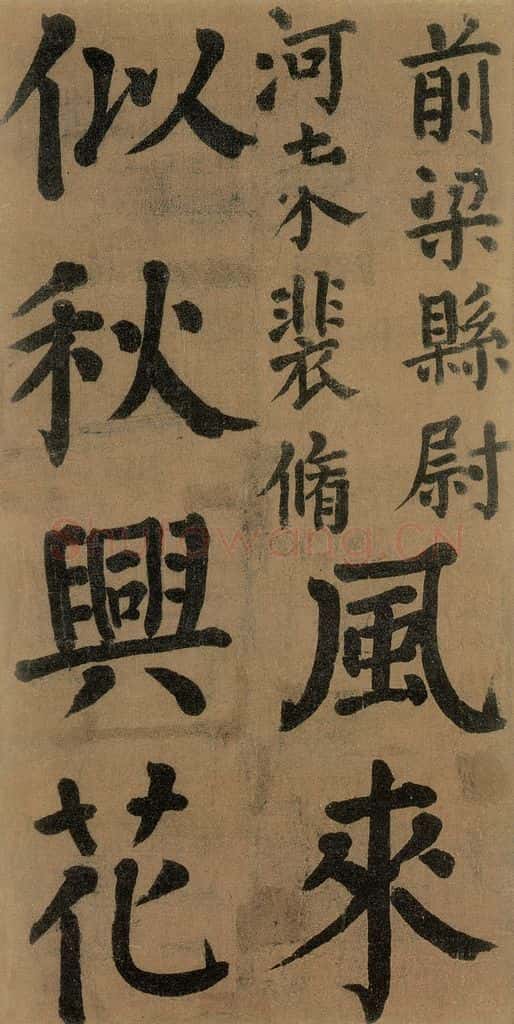 前梁縣尉
河東裴脩
風來
似秋興花
Shufawang.CN